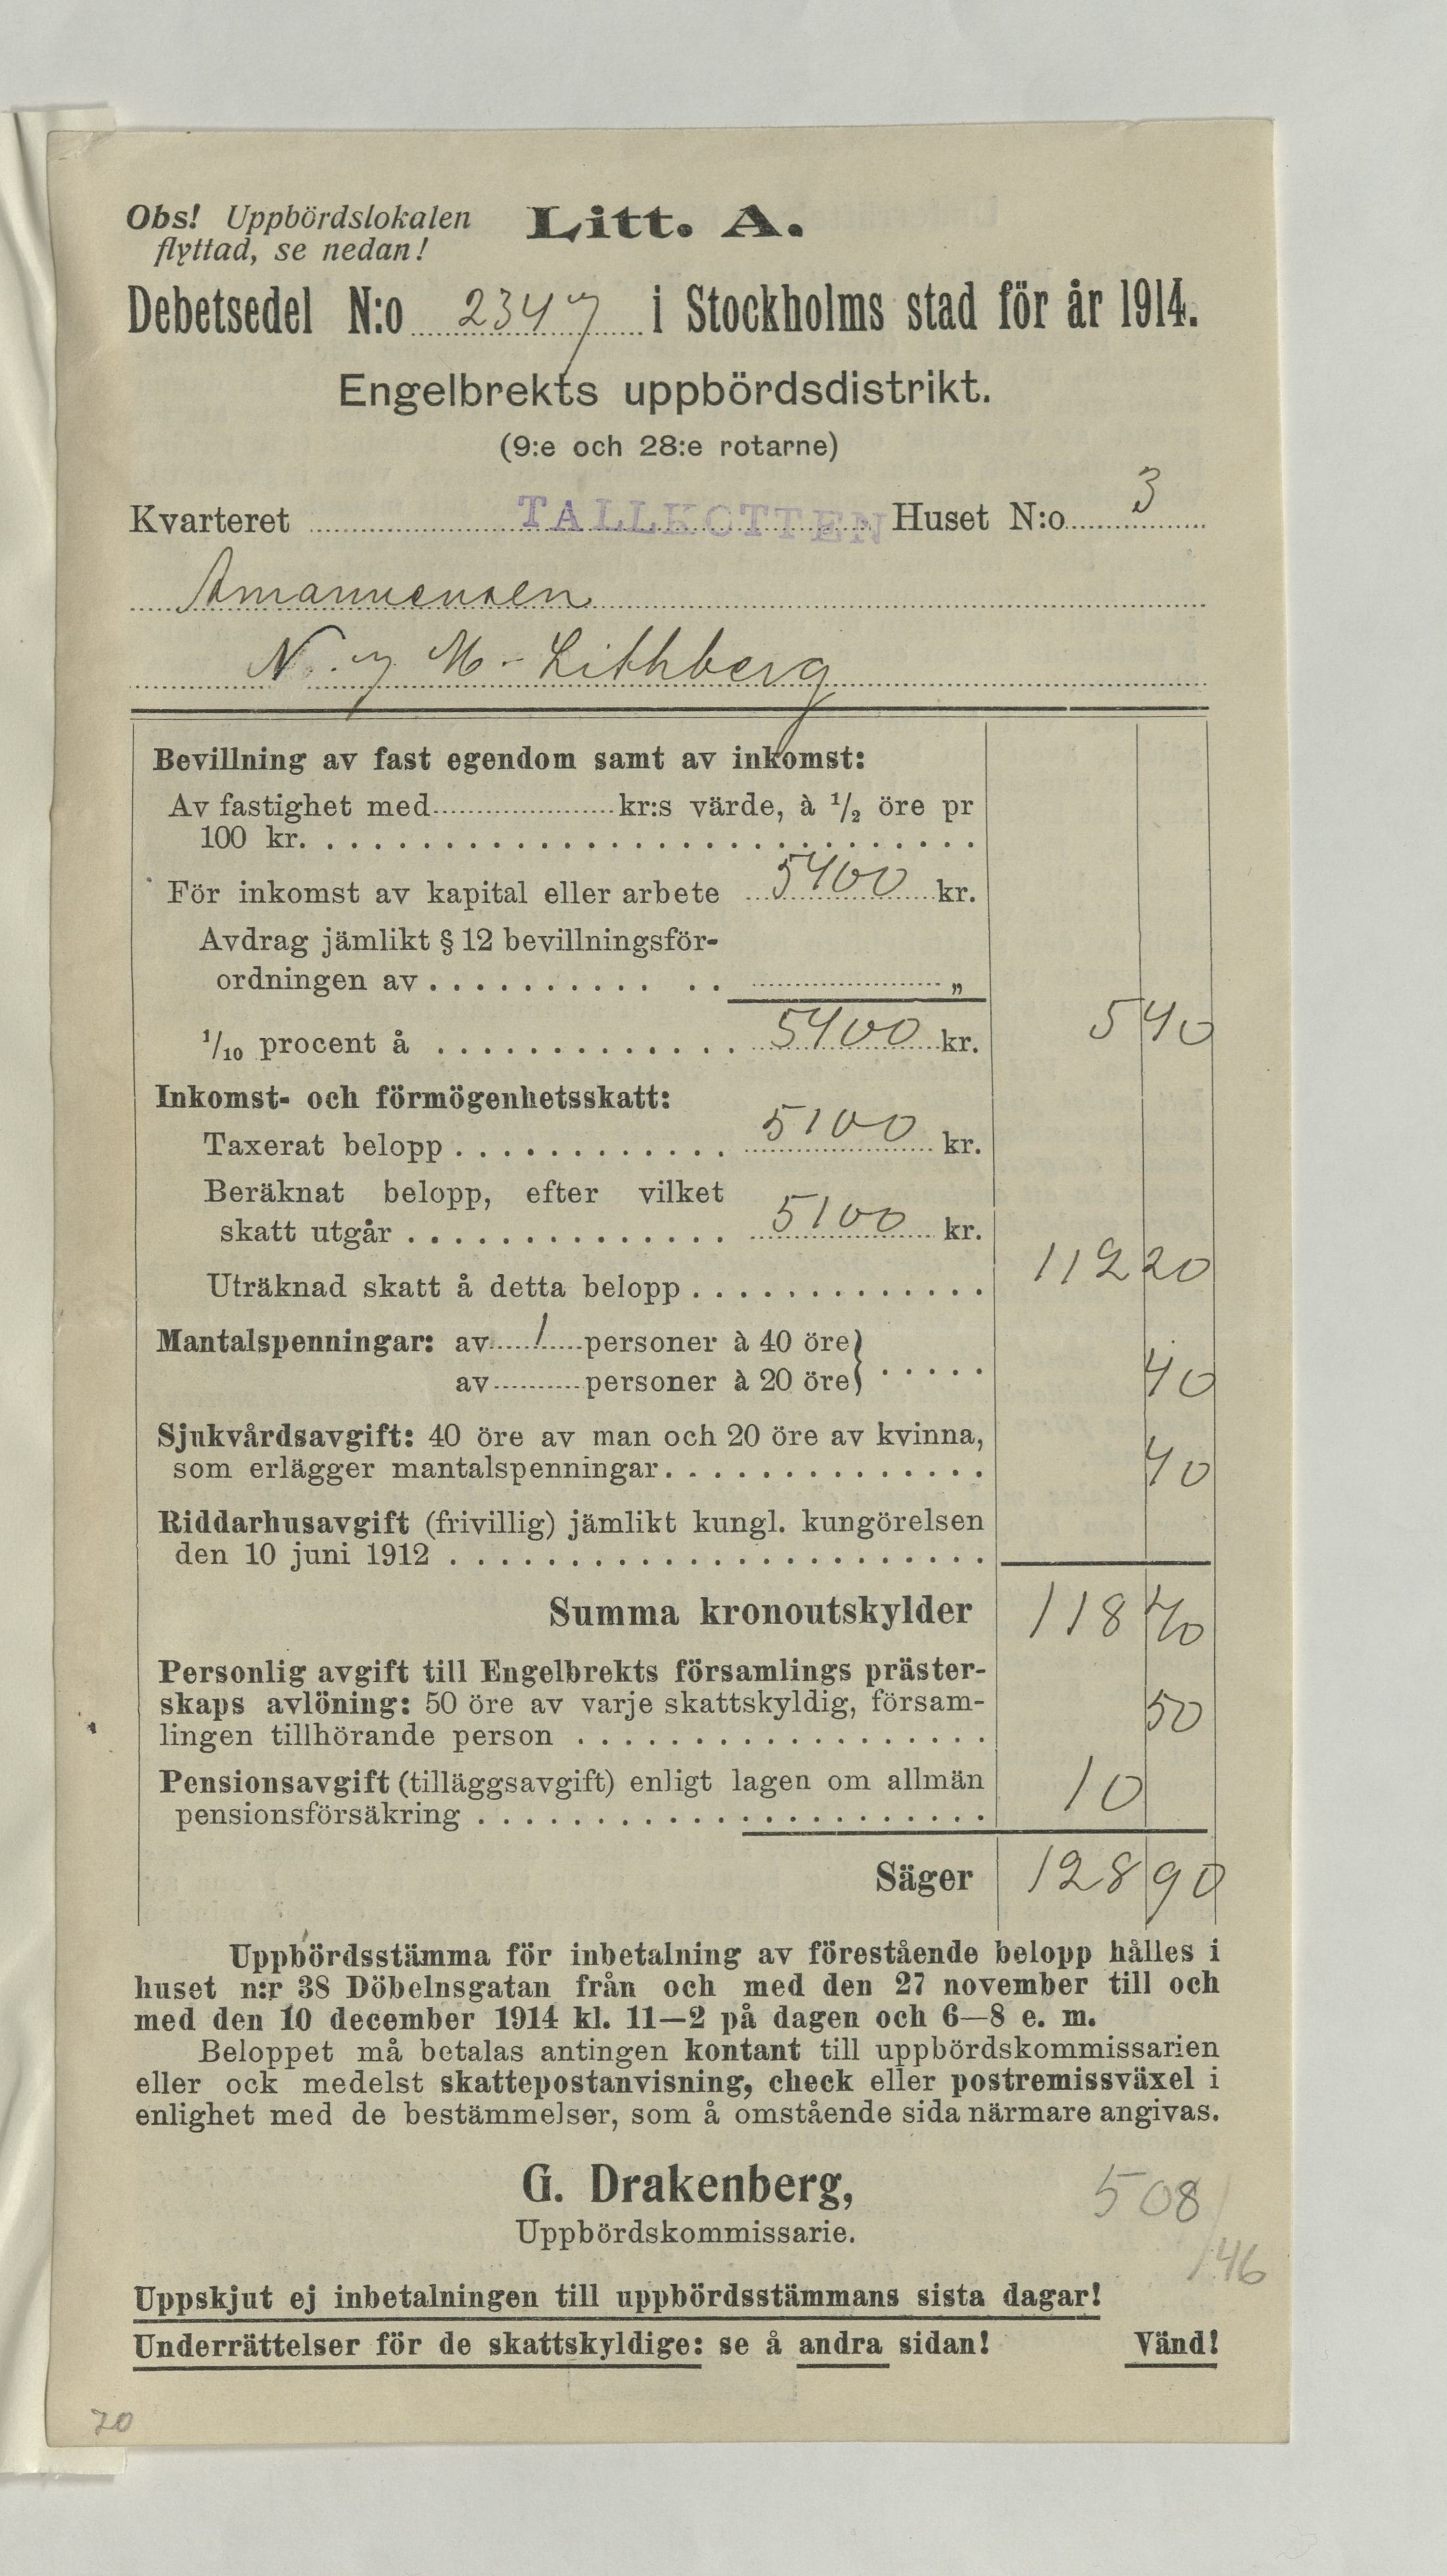 Obs! Uppbördslokalen
flyttad, se nedan!
Litt. A.
Debetsedel N:o 2347 i Stockholms stad för år 1914.
Engelbrekts uppbördsdistrikt.
(9:e och 28:e rotarne)
Kvarteret TALLKOTTEN Huset N:o 3
Amanuensen
N. J. M. Lithberg
Bevillning av fast egendom samt av inkomst:
Av fastighet med kr:s värde, à 1/2 öre pr
100 kr.
För inkomst av kapital eller arbete 5400 kr.
Avdrag jämlikt § 12 bevillningsför-
ordningen av „
1/10 procent å 5400 kr. 5 40
Inkomst- och förmögenhetsskatt:
Taxerat belopp 5100 kr.
Beräknat belopp, efter vilket
skatt utgår 5100 kr.
Uträknad skatt å detta belopp 112 20
Mantalspenningar: av 1 personer à 40 öre
av personer à 20 öre 40
Sjukvårdsavgift: 40 öre av man och 20 öre av kvinna,
som erlägger mantalspenningar 40
Riddarhusavgift (frivillig) jämlikt kungl. kungörelsen
den 10 juni 1912
Summa kronoutskylder 118 40
Personlig avgift till Engelbrekts församlings präster-
skaps avlöning: 50 öre av varje skattskyldig, försam-
lingen tillhörande person 50
Pensionsavgift (tilläggsavgift) enligt lagen om allmän
pensionsförsäkring 10
Säger 128 90
Uppbördsstämma för inbetalning av förestående belopp hålles i
huset n:r 38 Döbelnsgatan från och med den 27 november till och
med den 10 december 1914 kl. 11—2 på dagen och 6—8 e. m.
Beloppet må betalas antingen kontant till uppbördskommissarien
eller ock medelst skattepostanvisning, check eller postremissväxel i
enlighet med de bestämmelser, som å omstående sida närmare angivas.
G. Drakenberg,
Uppbördskommissarie.
508
146
Uppskjut ej inbetalningen till uppbördsstämmans sista dagar!
Underrättelser för de skattskyldige: se å andra sidan! Vänd!
20